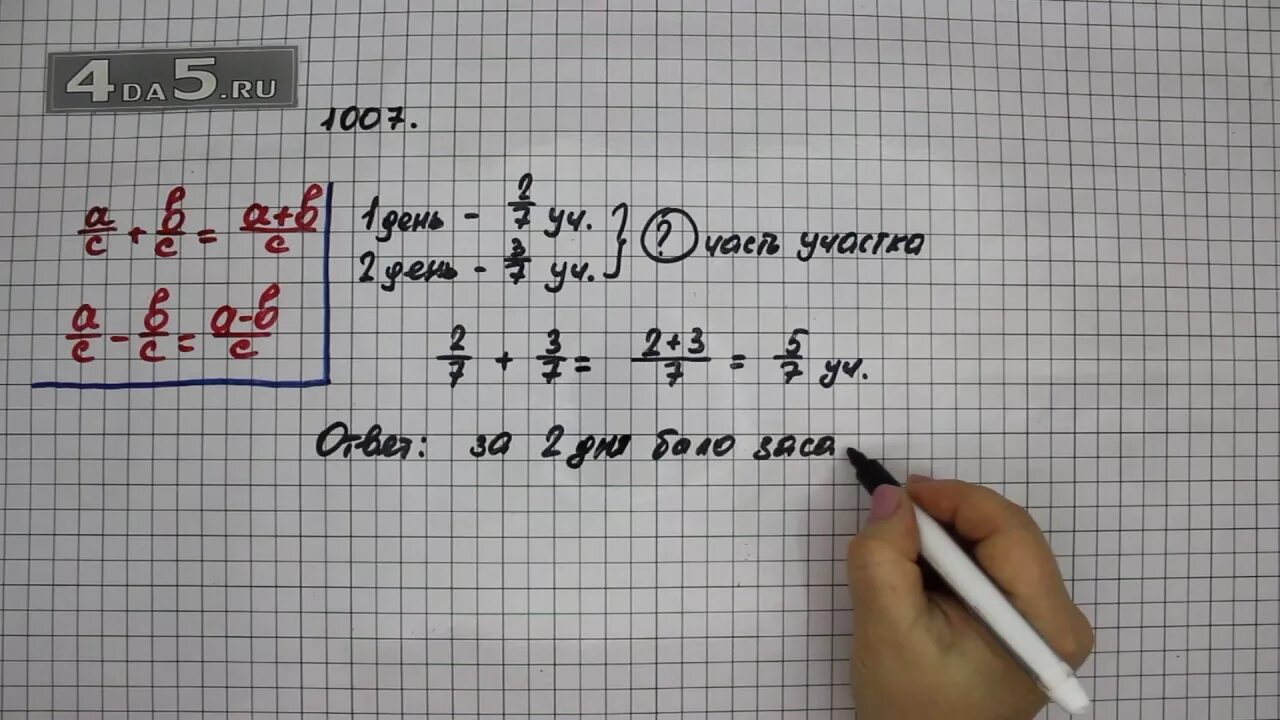 4DA5.RU
1007.
a/c + b/c = a+b/c
a/c - b/c = a-b/c
1 день - 2/7 уч.
2 день - 3/7 уч.
? часть участка
2/7 + 3/7 = 2+3/7 = 5/7 уч.
Ответ: за 2 дня было заса